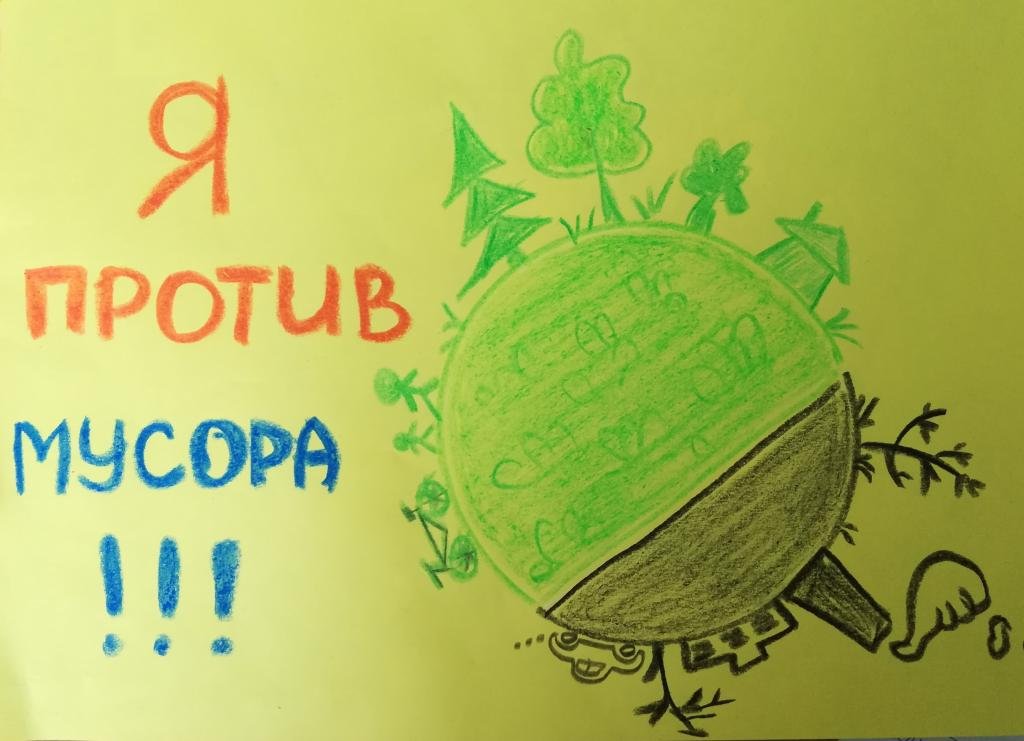 Я
ПРОТИВ
МУСОРА
!!!